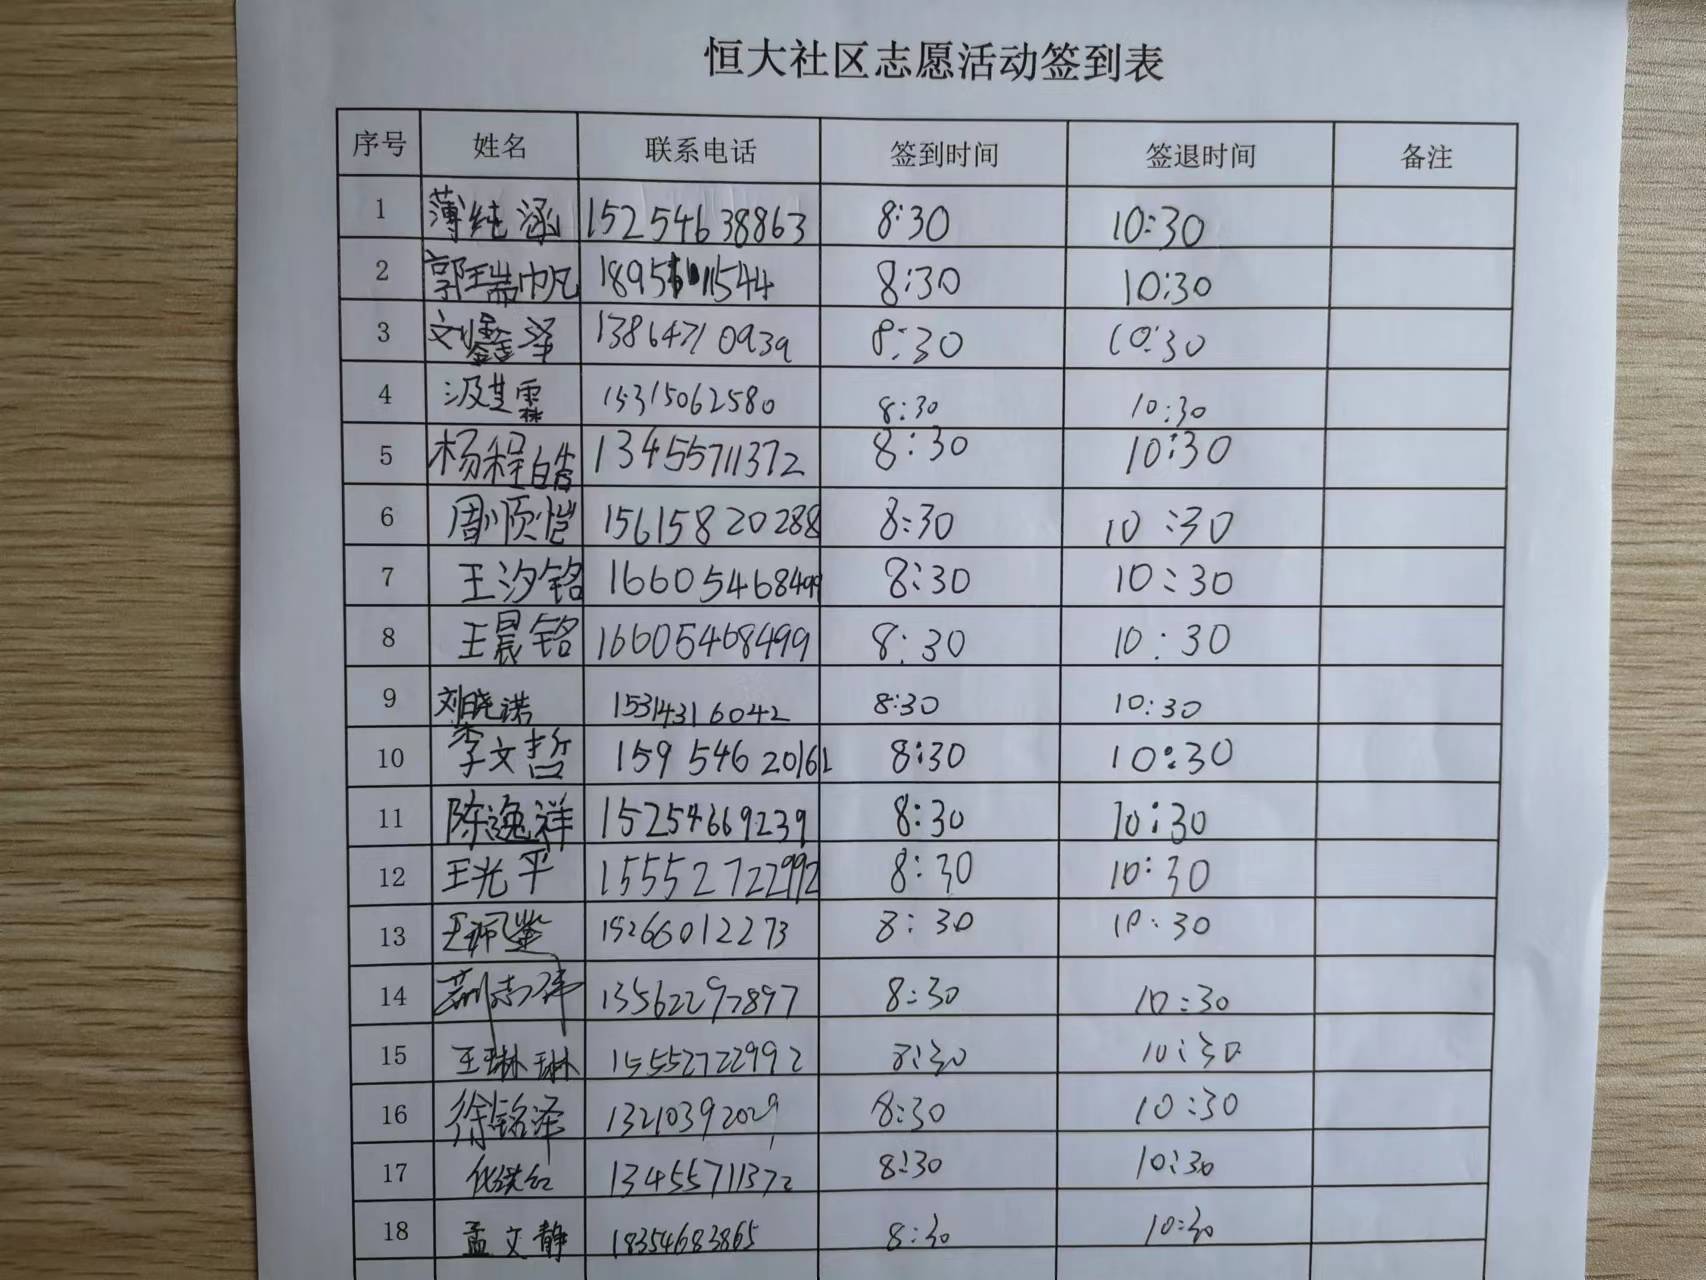 恒大社区志愿活动签到表
序号 姓名 联系电话 签到时间 签退时间 备注
1 薄纯涵 15254638863 8:30 10:30
2 郭瑞帆 8:30 10:30
3 刘鑫泽 13864710939 8:30 10:30
4 汲芸霖 15315062580 8:30 10:30
5 杨程皓 13455711372 8:30 10:30
6 周顺恺 15615820288 8:30 10:30
7 王汐铭 16605468499 8:30 10:30
8 王晨铭 16605468499 8:30 10:30
9 刘晓诺 15314316042 8:30 10:30
10 李文哲 8:30 10:30
11 陈逸祥 15254669239 8:30 10:30
12 王光平 15552722992 8:30 10:30
13 15266012273 8:30 10:30
14 13562297897 8:30 10:30
15 王琳琳 15552722992 8:30 10:30
16 徐铭泽 13210392029 8:30 10:30
17 13455711372 8:30 10:30
18 孟文静 18354683865 8:30 10:30